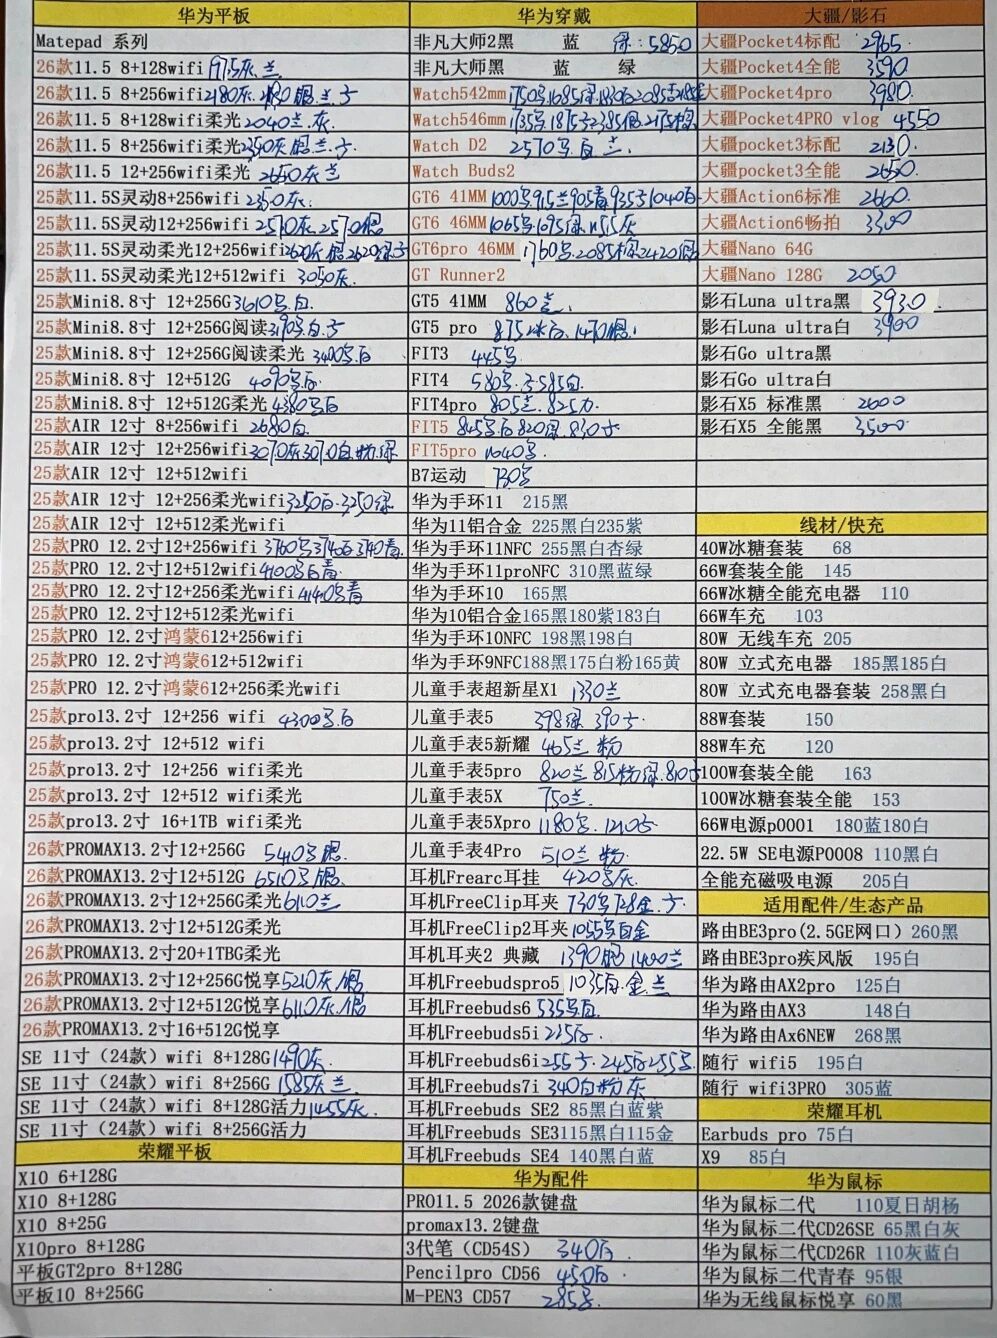 华为平板
Matepad 系列
26款11.5 8+128wifi 1975灰.兰
26款11.5 8+256wifi 2180灰.
26款11.5 8+128wifi柔光 2040兰.灰
26款11.5 8+256wifi柔光
26款11.5 12+256wifi柔光 2650灰兰
26款11.5S灵动8+256wifi 2350灰.
26款11.5S灵动12+256wifi 2570灰.2570银
26款11.5S灵动柔光12+256wifi
26款11.5S灵动柔光12+512wifi 3050灰.
25款Mini8.8寸 12+256G 3610黑.白.
25款Mini8.8寸 12+256G阅读
25款Mini8.8寸 12+256G阅读柔光 3400黑白
25款Mini8.8寸 12+512G 4090黑白.
25款Mini8.8寸 12+512G柔光 4380黑白
25款AIR 12寸 8+256wifi 2680白.
25款AIR 12寸 12+256wifi 3070灰3070白.粉.绿
25款AIR 12寸 12+512wifi
25款AIR 12寸 12+256柔光wifi 3250白.3250绿
25款AIR 12寸 12+512柔光wifi
25款PRO 12.2寸12+256wifi 3760黑3740白3740青.
25款PRO 12.2寸12+512wifi 4100黑白青.
25款PRO 12.2寸12+256柔光wifi 4140黑青
25款PRO 12.2寸12+512柔光wifi
25款PRO 12.2寸鸿蒙612+256wifi
25款PRO 12.2寸鸿蒙612+512wifi
25款PRO 12.2寸鸿蒙612+256柔光wifi
25款pro13.2寸 12+256 wifi 4300黑白
25款pro13.2寸 12+512 wifi
25款pro13.2寸 12+256 wifi柔光
25款pro13.2寸 12+512 wifi柔光
25款pro13.2寸 16+1TB wifi柔光
26款PROMAX13.2寸12+256G 5410黑.银.
26款PROMAX13.2寸12+512G 6510黑银.
26款PROMAX13.2寸12+256G柔光 6110兰
26款PROMAX13.2寸12+512G柔光
26款PROMAX13.2寸20+1TBG柔光
26款PROMAX13.2寸12+256G悦享 5210灰.银
26款PROMAX13.2寸12+512G悦享 6110灰.银
26款PROMAX13.2寸16+512G悦享
SE 11寸（24款）wifi 8+128G 1490灰.
SE 11寸（24款）wifi 8+256G 1585灰兰.
SE 11寸（24款）wifi 8+128G活力 1455灰.
SE 11寸（24款）wifi 8+256G活力
荣耀平板
X10 6+128G
X10 8+128G
X10 8+25G
X10pro 8+128G
平板GT2pro 8+128G
平板10 8+256G
华为穿戴
非凡大师2黑 蓝 绿:5850
非凡大师黑 蓝 绿
Watch542mm
Watch546mm
Watch D2 2570黑白兰.
Watch Buds2
GT6 41MM
GT6 46MM
GT6pro 46MM
GT Runner2
GT5 41MM 860兰.
GT5 pro
FIT3 445黑
FIT4
FIT4pro
FIT5
FIT5pro 1040黑.
B7运动 730黑
华为手环11 215黑
华为11铝合金 225黑白235紫
华为手环11NFC 255黑白杏绿
华为手环11proNFC 310黑蓝绿
华为手环10 165黑
华为10铝合金165黑180紫183白
华为手环10NFC 198黑198白
华为手环9NFC188黑175白粉165黄
儿童手表超新星X1 1330兰
儿童手表5
儿童手表5新耀 465兰.粉
儿童手表5pro
儿童手表5X 750兰.
儿童手表5Xpro
儿童手表4Pro 510兰.粉.
耳机Frearc耳挂 420黑灰.
耳机FreeClip耳夹
耳机FreeClip2耳夹 1055黑白金
耳机耳夹2 典藏
耳机Freebudspro5 1035白.金.兰
耳机Freebuds6 535黑白
耳机Freebuds5i 225白.
耳机Freebuds6i
耳机Freebuds7i 340白粉灰
耳机Freebuds SE2 85黑白蓝紫
耳机Freebuds SE3115黑白115金
耳机Freebuds SE4 140黑白蓝
华为配件
PRO11.5 2026款键盘
promax13.2键盘
3代笔（CD54S） 340白.
Pencilpro CD56 450白.
M-PEN3 CD57 285黑.
大疆/影石
大疆Pocket4标配 2965.
大疆Pocket4全能 3590.
大疆Pocket4pro 3980.
大疆Pocket4PRO vlog 4550
大疆pocket3标配 2130.
大疆pocket3全能 2650.
大疆Action6标准 2660.
大疆Action6畅拍 3300
大疆Nano 64G
大疆Nano 128G 2050
影石Luna ultra黑 3930
影石Luna ultra白 3900
影石Go ultra黑
影石Go ultra白
影石X5 标准黑 2600
影石X5 全能黑 3500
线材/快充
40W冰糖套装 68
66W套装全能 145
66W冰糖全能充电器 110
66W车充 103
80W 无线车充 205
80W 立式充电器 185黑185白
80W 立式充电器套装 258黑白
88W套装 150
88W车充 120
100W套装全能 163
100W冰糖套装全能 153
66W电源p0001 180蓝180白
22.5W SE电源P0008 110黑白
全能充磁吸电源 205白
适用配件/生态产品
路由BE3pro(2.5GE网口) 260黑
路由BE3pro疾风版 195白
华为路由AX2pro 125白
华为路由AX3 148白
华为路由Ax6NEW 268黑
随行 wifi5 195白
随行 wifi3PRO 305蓝
荣耀耳机
Earbuds pro 75白
X9 85白
华为鼠标
华为鼠标二代 110夏日胡杨
华为鼠标二代CD26SE 65黑白灰
华为鼠标二代CD26R 110灰蓝白
华为鼠标二代青春 95银
华为无线鼠标悦享 60黑